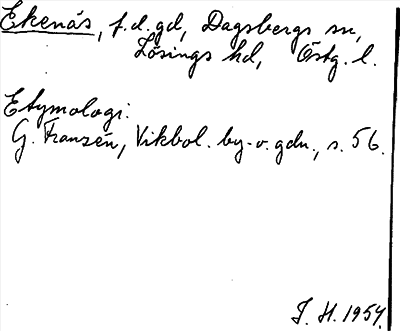 Ekenäs, f.d. gd, Dagsbergs sn,
Lösings hd, Östg. l.
Etymologi:
G. Franzén, Vikbol. by- o. gdn., s. 56.
J. H. 1954.